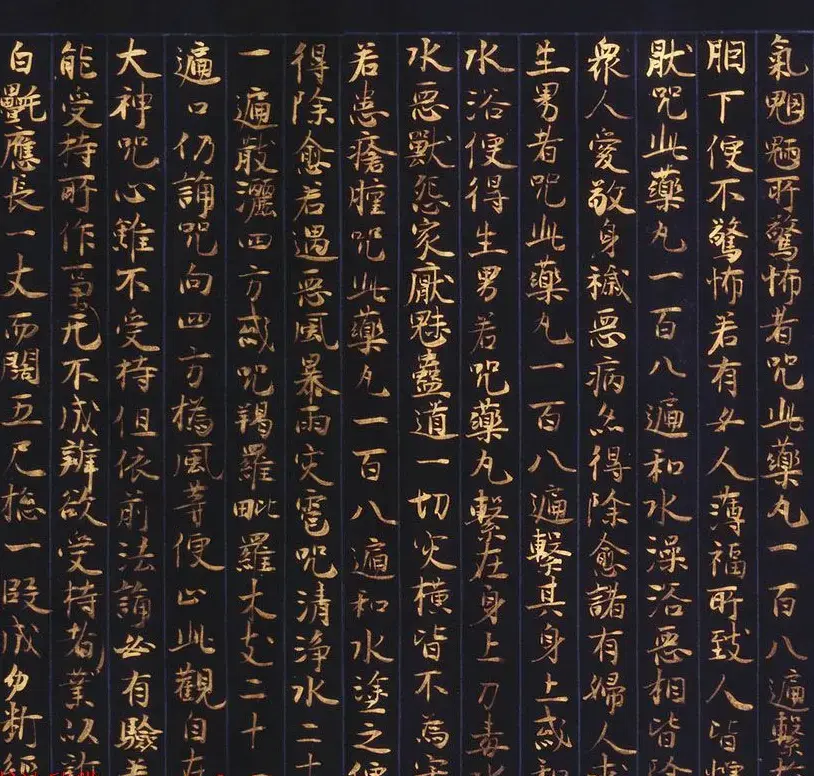 氣魍魎所驚怖者咒此藥丸一百八遍繫
胭下便不驚怖若有女人薄福所致人皆
猒咒此藥丸一百八遍和水澡浴惡相皆除
眾人愛敬身穢惡病亦得除愈諸有婦人
生男者咒此藥丸一百八遍繫其身上或和
水浴便得生男若咒藥丸繫在身上刀毒水
水惡獸怨家厭魅蠱道一切灾橫皆不為害
若患瘡腫咒此藥丸一百八遍和水塗之便
得除愈若遇惡風暴雨灾雹咒清淨水二十
一遍散灑四方或咒羯羅毗羅木支二十一
遍口仍誦咒向四方撝風等便止此觀自在
大神咒心雖不受持但依前法誦必有驗若
能受持所作事无不成辦欲受持者業以
白氎應長一丈而闊五尺摠一段成勿斬經